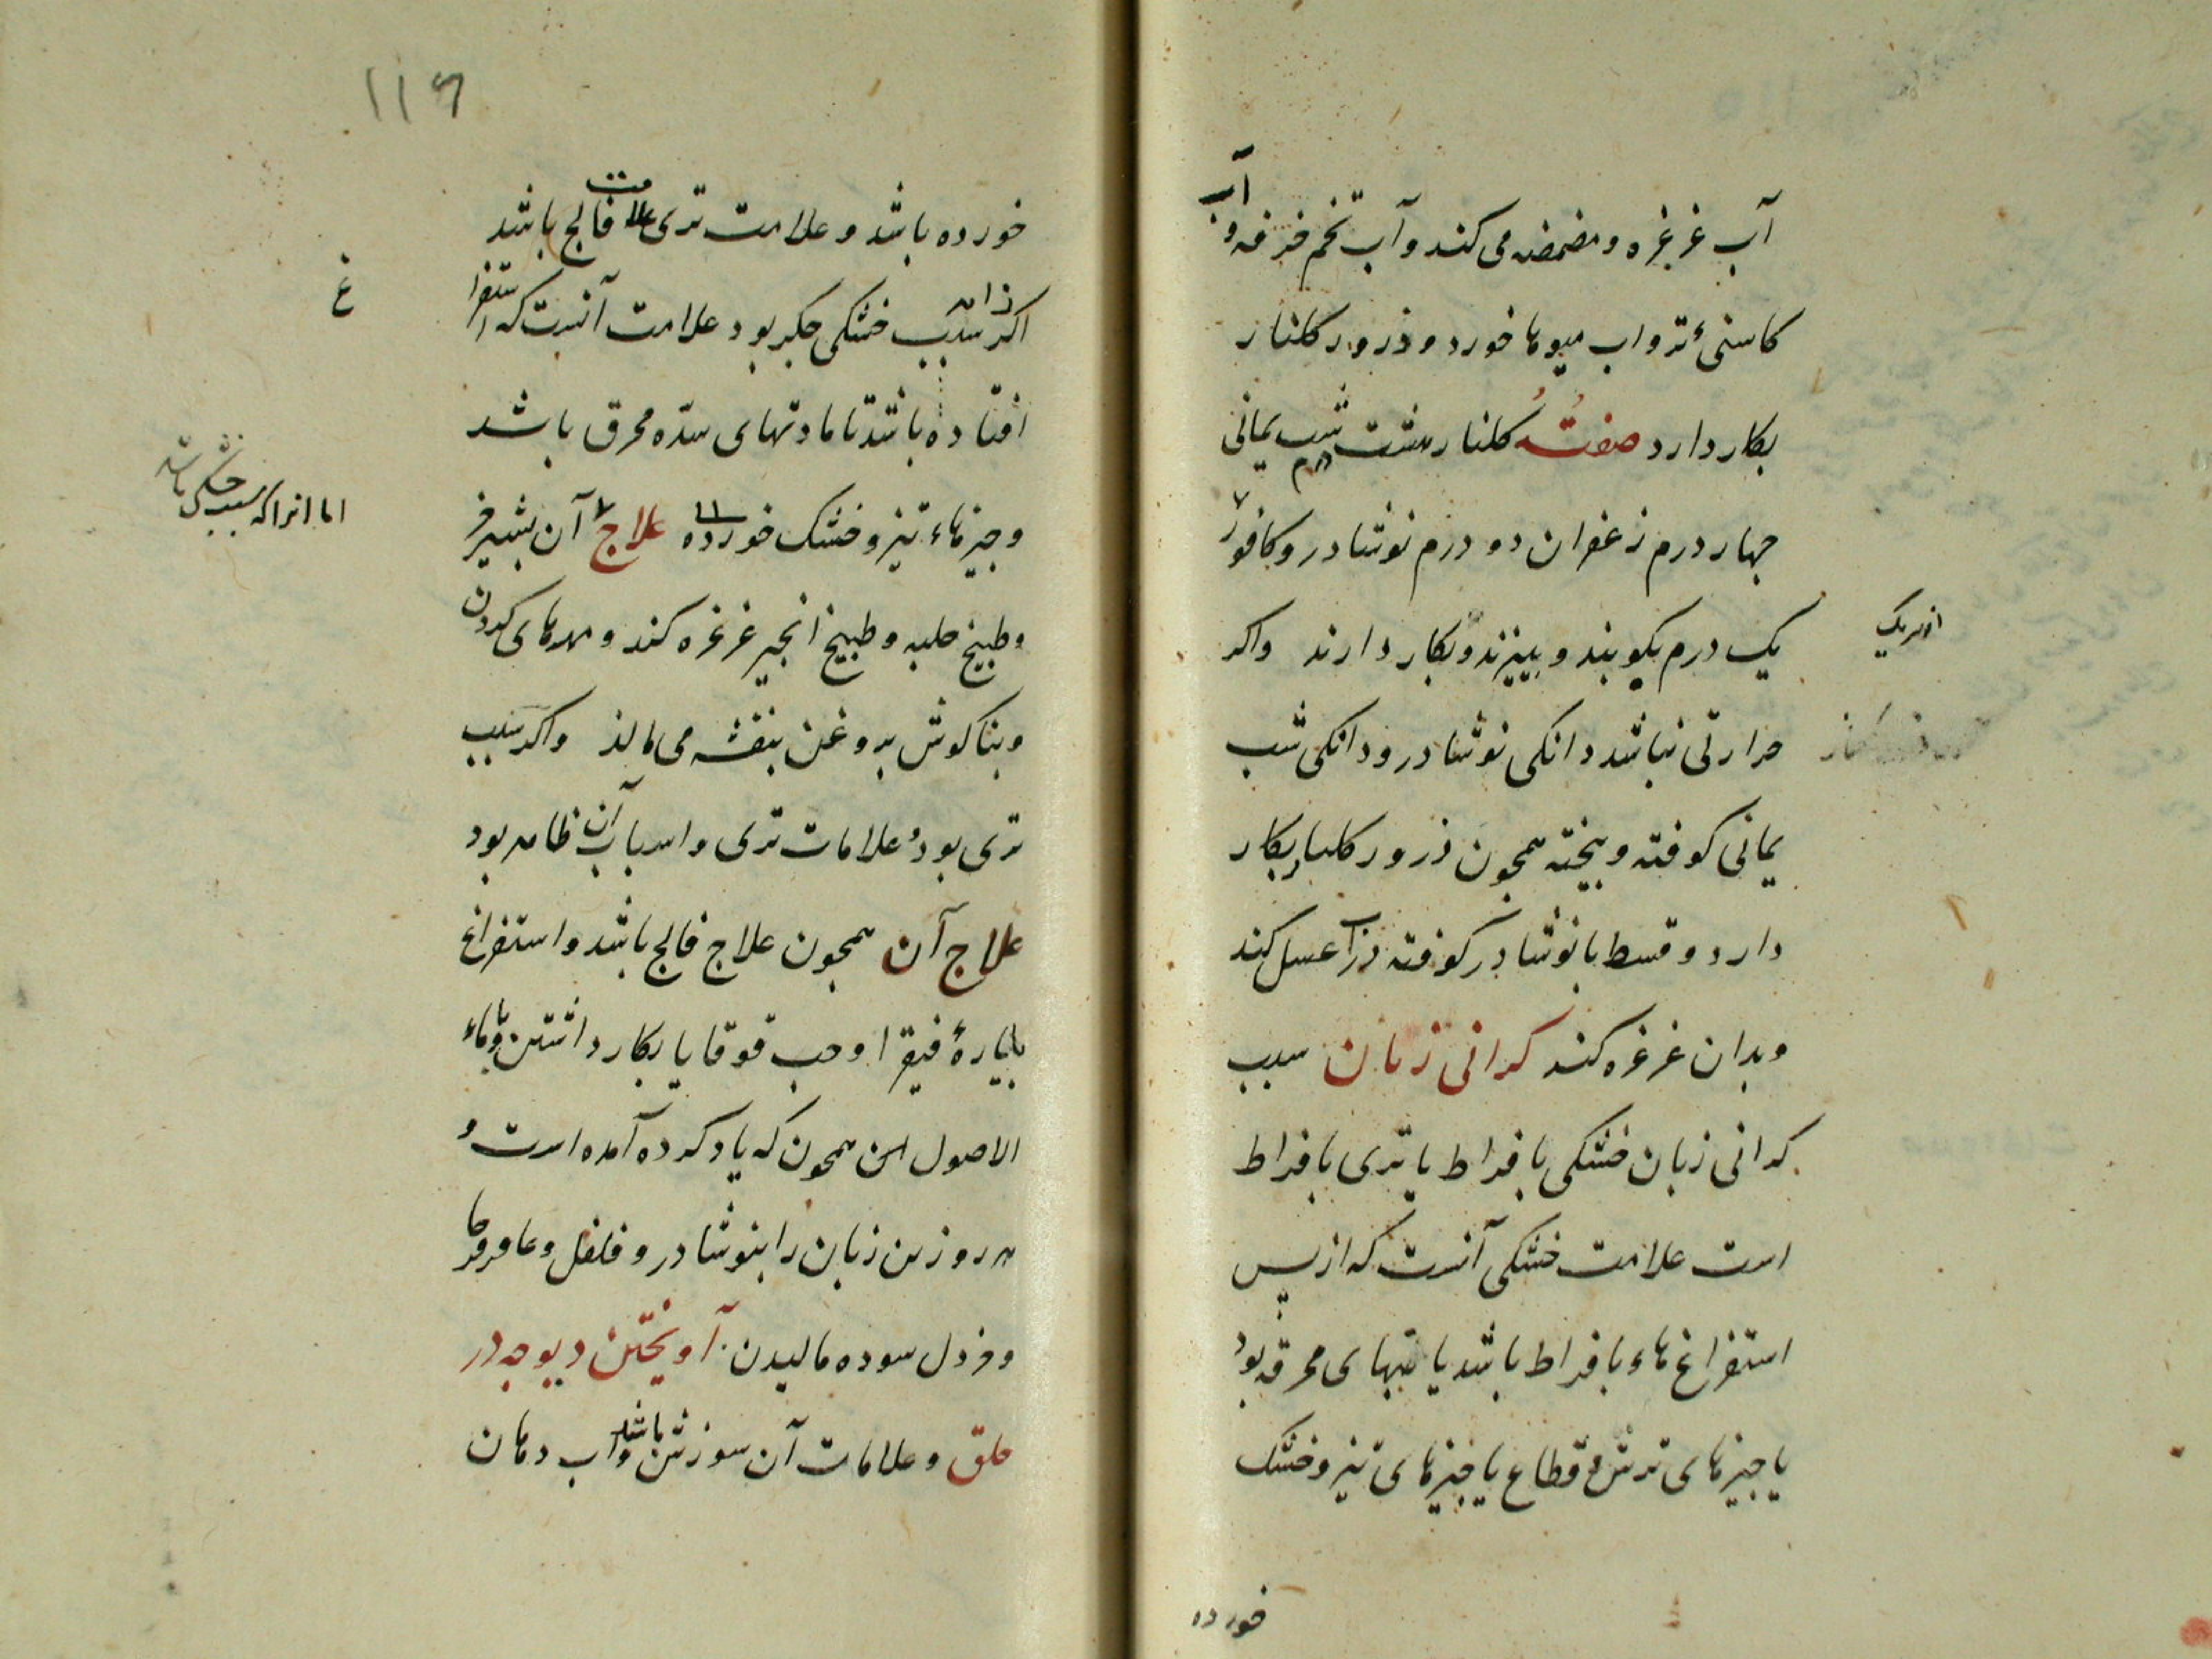 آب غرغره و مضمضه می کند و آب تخم خرفه و آب
کاسنیٔ تر و اب میوها خورد و ذرور کلنار
بکار دارد صفتُ کلنار هشت درم شب یمانی
جهار درم زعفران دو درم نوشادر و کافور
یک درم بکوبند و ببیزند و بکار دارند واکر
از هر یک
حرارتی نباشد دانکی نوشادر و دانکی شب
یمانی کوفته و بیخته همجون ذرور کلنار بکار
دارد و قسط با نوشادر کوفته در آب عسل کند
و بدان غرغره کند کرانی زبان سبب
کرانی زبان خشکی بافراط یا تری بافراط
است علامت خشکی آنست که از پس
استفراغ هاء بافراط باشد یا تبهای محرقه بود
یا جیزهای ترش و قطاع یا جیزهای تیز و خشک
خورده
۱۱۶
خورده باشد و علامت تری علامت فالج باشد
اکر سبب خشکی جکر بود علامت آنست که استفراغ
افتاده باشد تا مادتهای سدّه محرق باشد
وجیزهاء تیز و خشک خورده علاج آن بشیر خر
اما انرا که سبب خشکی باشد
و طبیخ حلبه و طبیخ انجیر غرغره کند و مهرهای کردن
و بناکوش بروغن بنفشه می مالذ واکر سبب
تری بود علامات تری و اسباب آن ظاهر بود
علاج آن همجون علاج فالج باشد و استفراغ
بایارهٔ فیقرا و حب قوقایا بکار داشتن و ماء
الاصول این همجون که یاد کرده آمده است و
هر روز بن زبان را بنوشادر و فلفل و عاقرقرحا
و خردل سوده مالیدن. آویختن دیوجه در
حلق و علامات آن سوزش باشد و آب دهان